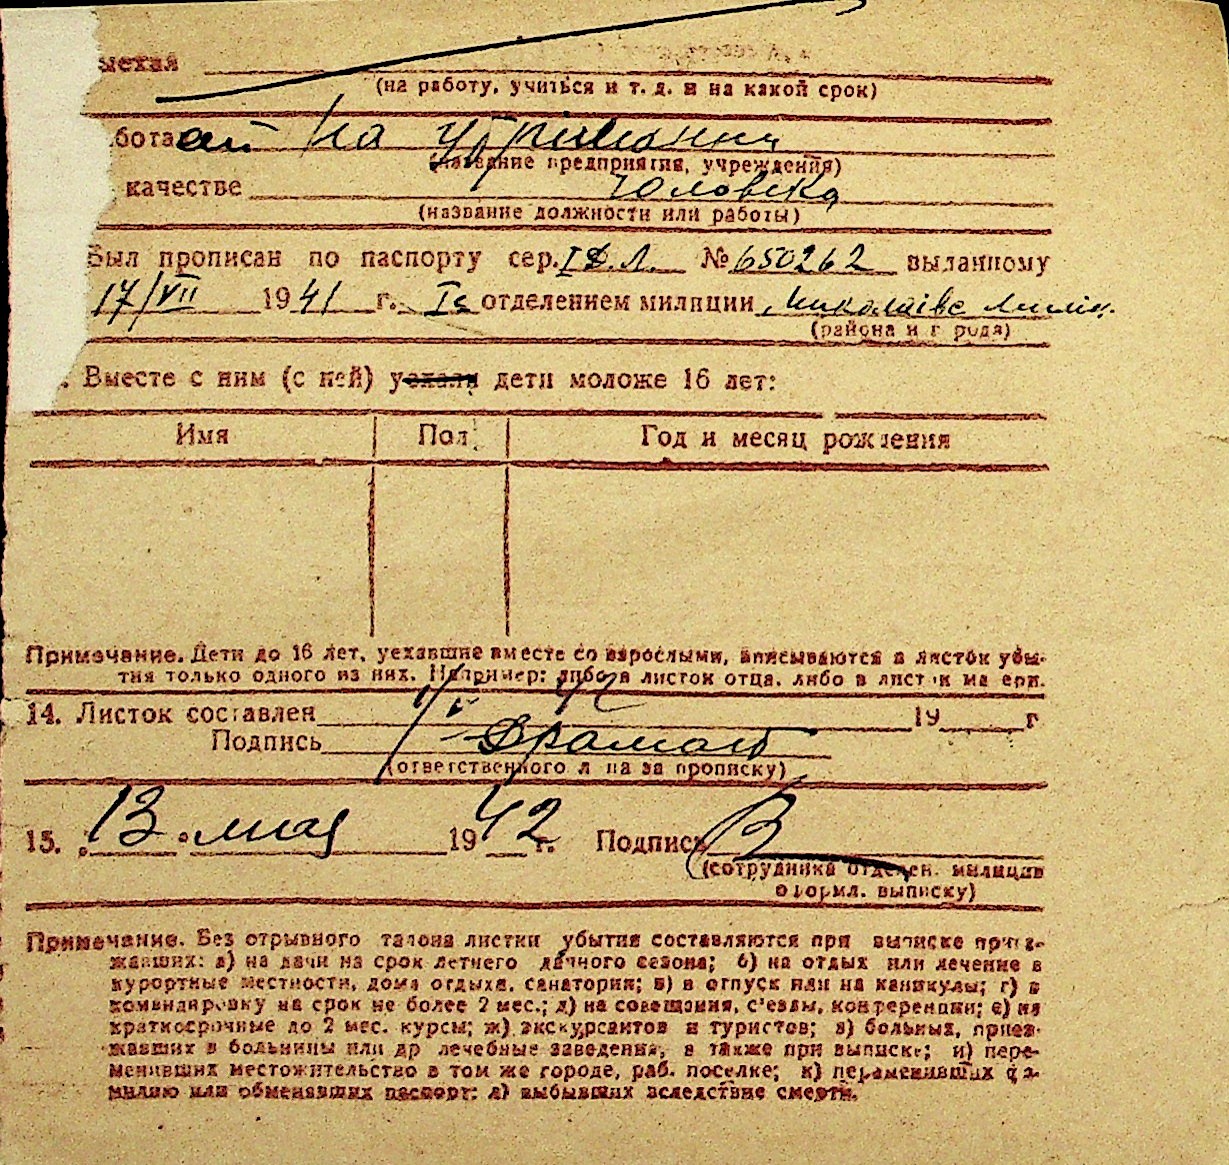 (на работу, учиться и т. д. и на какой срок)
бота на утриманни
(название предприятия, учреждения)
качестве чоловека
(название должности или работы)
Был прописан по паспорту сер. № 650262 выданному
17/VII 1941 г. отделением милиции
(района и города)
Вместе с ним (с ней) уехали дети моложе 16 лет:
Имя Пол Год и месяц рождения
Примечание. Дети до 16 лет, уехавшие вместе со взрослыми, вписываются в листок убы-
тия только одного из них. Например: либо в листок отца, либо в листок матери.
14. Листок составлен 1/V 42 19 г
Подпись
(ответственного лица за прописку)
15. 13 мая 1942 г. Подпись
(сотрудника отделен. милиции
оформл. выписку)
Примечание. Без отрывного талона листки убытия составляются при выписке приез-
жавших: а) на дачи на срок летнего дачного сезона; б) на отдых или лечение в
курортные местности, дома отдыха, санатории; в) в отпуск или на каникулы; г) в
командировку на срок не более 2 мес.; д) на совещания, с'езды, конференции; е) на
краткосрочные до 2 мес. курсы; ж) экскурсантов и туристов; з) больных, приез-
жавших в больницы или др лечебные заведения, а также при выписке; и) пере-
менивших местожительство в том же городе, раб. поселке; к) переменивших фа-
милию или обменявших паспорт; л) выбывших вследствие смерти.